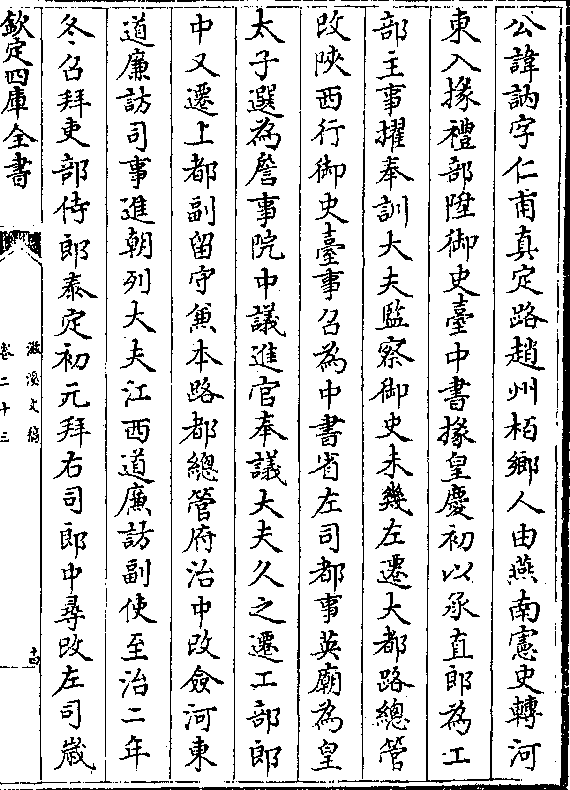 公諱訥字仁甫真定路趙州柏鄉人由燕南憲史轉河
東入掾禮部陞御史臺中書掾皇慶初以承直郎為工
部主事擢奉訓大夫監察御史未幾左遷大都路總管
改陜西行御史臺事召為中書省左司都事英廟為皇
太子選為詹事院中議進官奉議大夫久之遷工部郎
中又遷上都副留守兼本路都總管府治中改僉河東
道廉訪司事進朝列大夫江西道廉訪副使至治二年
冬召拜吏部侍郎泰定初元拜右司郎中尋改左司歲
欽定四庫全書
滋溪文稿
卷二十三
十四